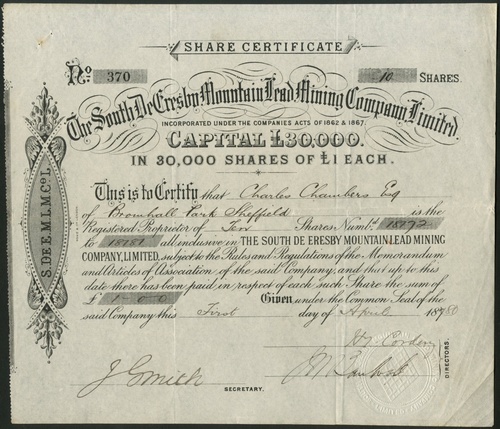 SHARE CERTIFICATE
No. 370 10 SHARES.
The South De Eresby Mountain Lead Mining Company, Limited.
INCORPORATED UNDER THE COMPANIES ACTS OF 1862 & 1867.
CAPITAL £30,000.
IN 30,000 SHARES OF £1 EACH.
S. DE E. M. L. M. Co. L.
This is to Certify that Charles Chambers Esq
of Broomhall Park Sheffield is the
Registered Proprietor of Ten Shares Numbd. 18172
to 18181 all inclusive in THE SOUTH DE ERESBY MOUNTAIN LEAD MINING
COMPANY, LIMITED, subject to the Rules and Regulations of the Memorandum
and Articles of Association of the said Company, and that up to this
date there has been paid in respect of each such Share the sum of
£ 1-0-0 Given under the Common Seal of the
said Company this First day of April 1880
J Smith
SECRETARY.
DIRECTORS.